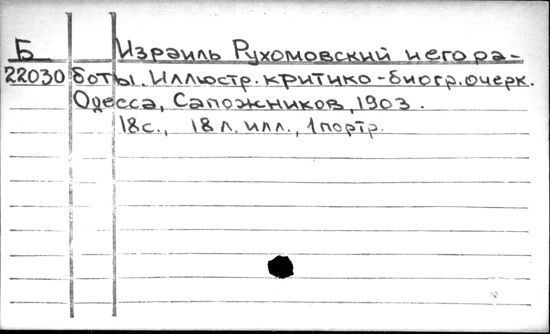 Б Израиль Рухомовский и его ра-
22030 боты. Иллюстр. критико-биогр. очерк.
Одесса, Сапожников, 1903.
18 с., 18 л. илл., 1 портр.